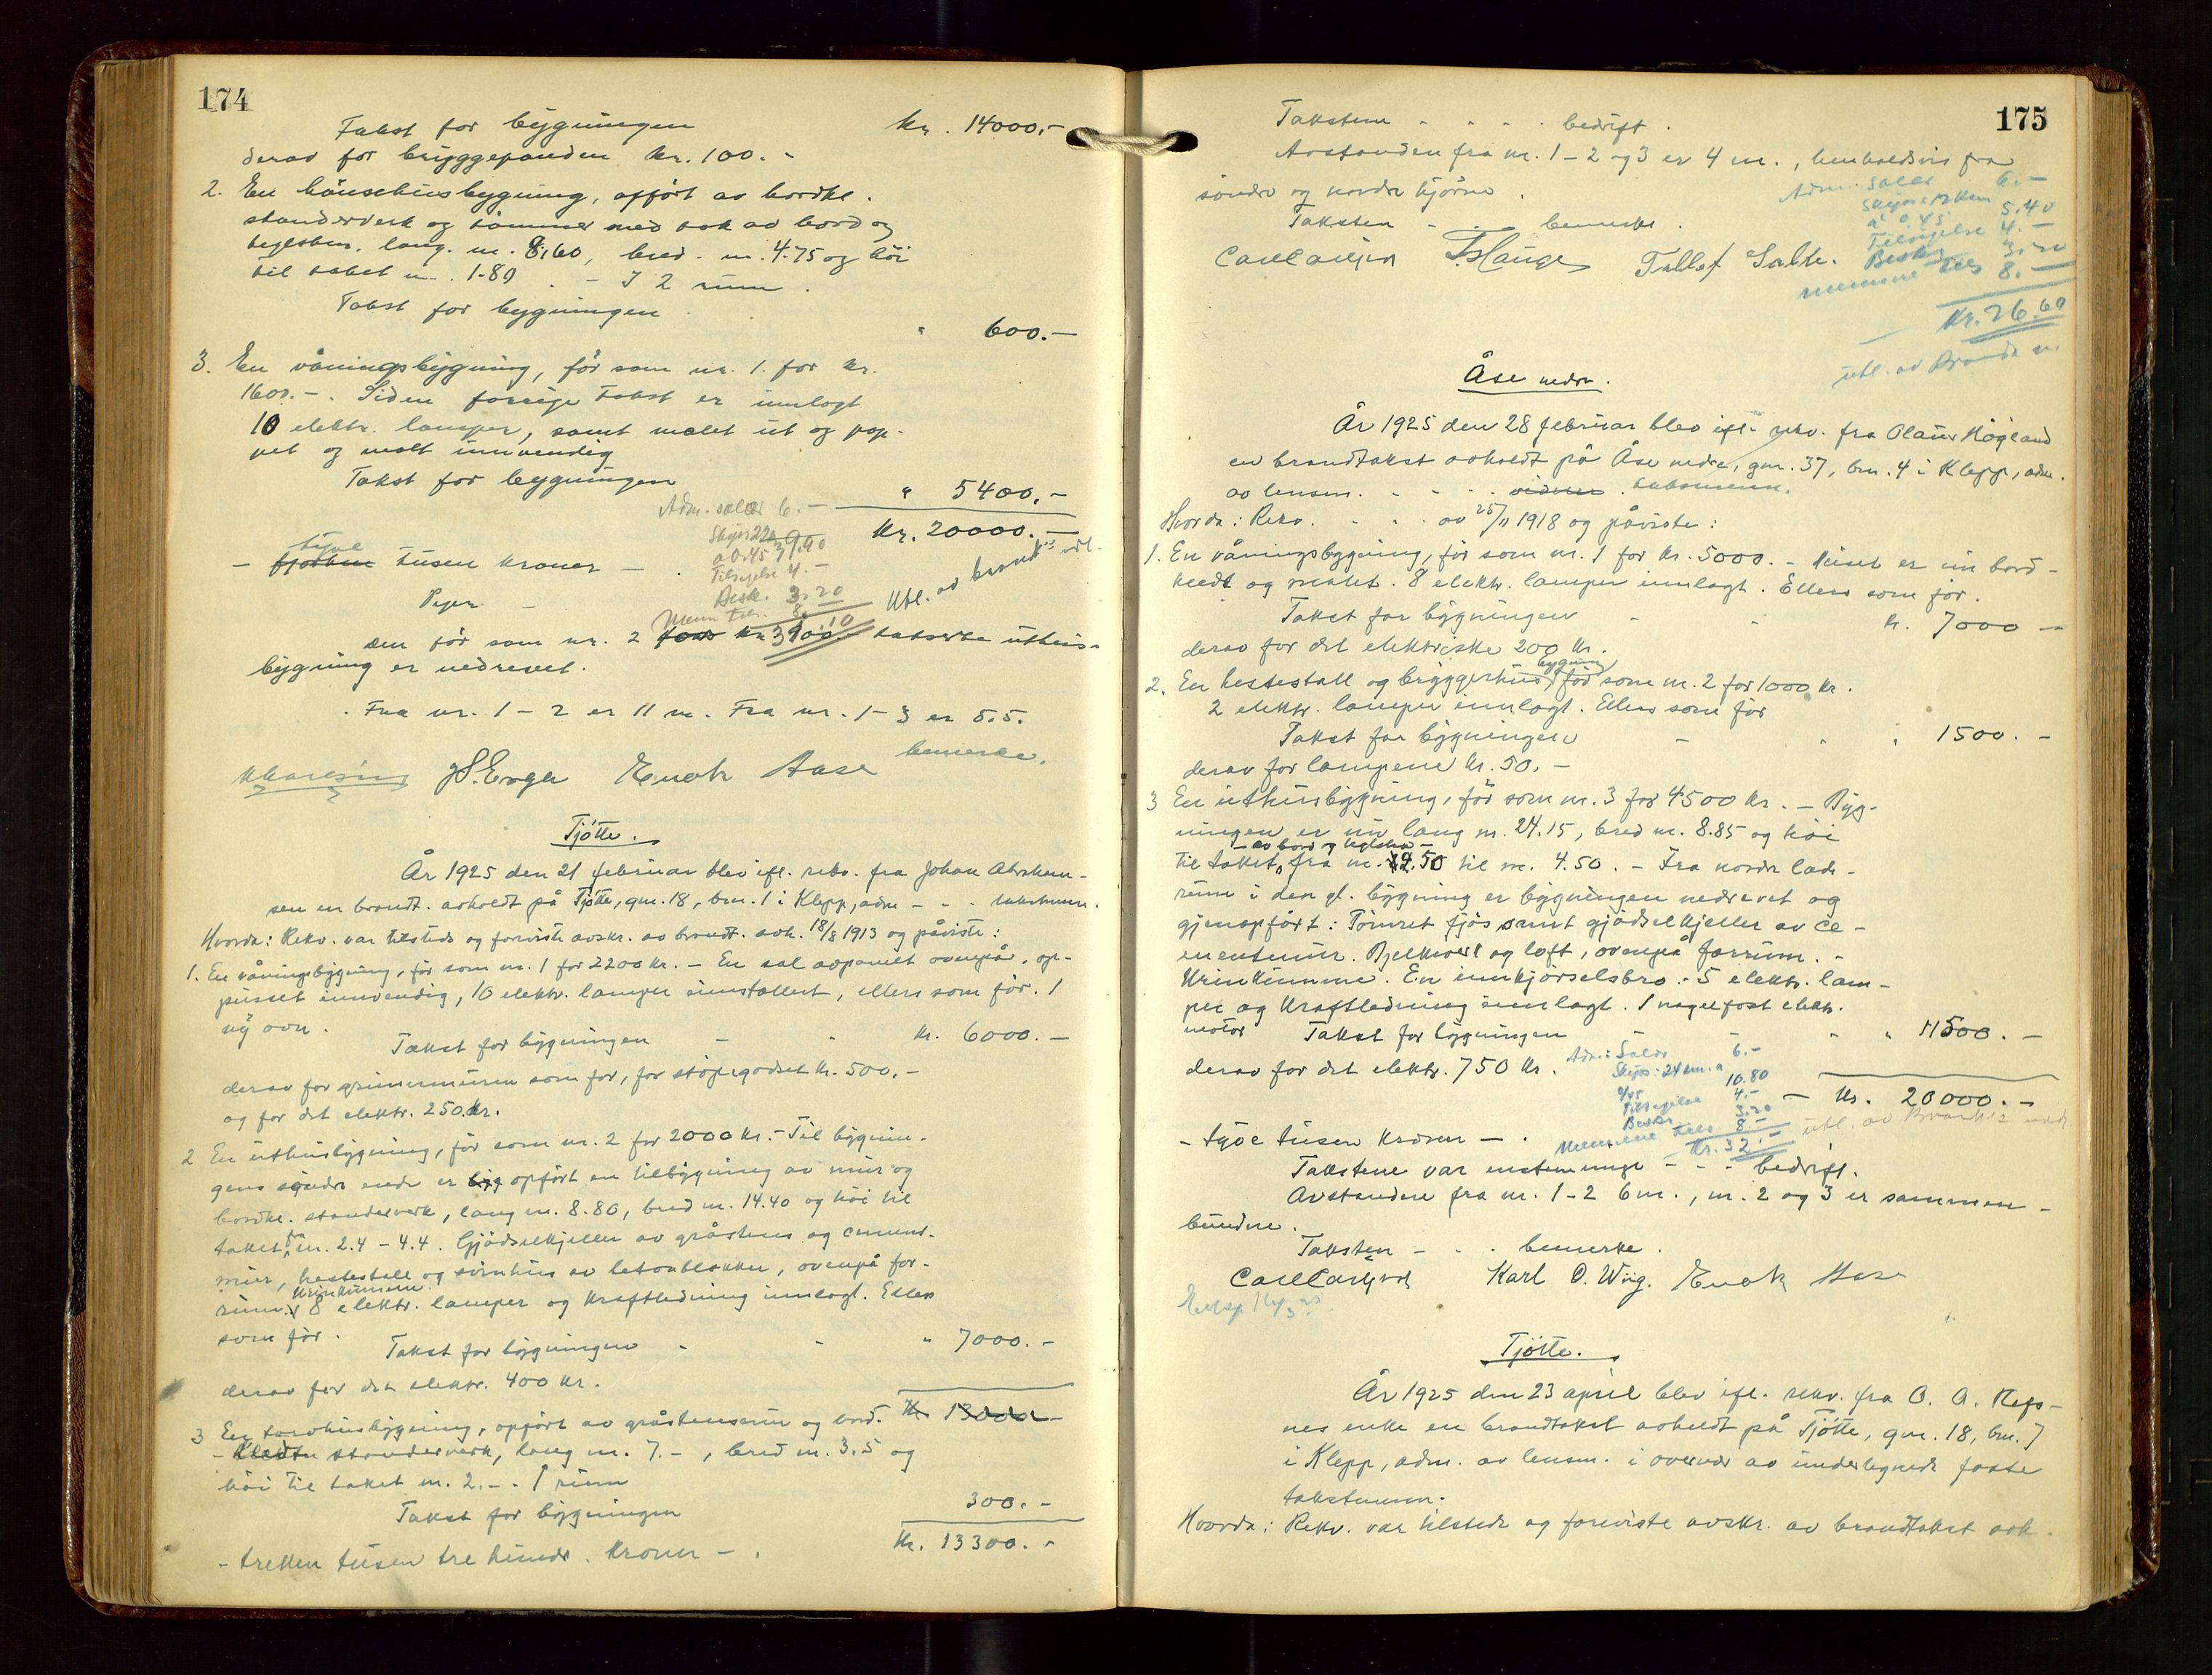 174
Takst for bygningen kr. 14000,-
derav for bryggepanden kr. 100.-
2. En hönsehusbygning, opfört av bordkl.
standerverk og tömmer med tak av bord og
teglsten. lang. m. 8,60, bred. m. 4.75 og höi
til taket m. 1.80 . - I 2 rum .
Takst for bygningen . " 600.-
3. En våningsbygning, för som nr. 1. for kr.
1600.-. Siden forrige takst er innlagt
10 elektr. lamper, samt malet ut og pap-
pet og malt innvendig
Takst for bygningen " 5400.-
Adm. salær 6.-
Kr. 20000.-
Skyss 22
a 0.45 9.90
Tilsigelse 4.-
Besk. 3.20
Menn 8.
- tyve tusen kroner -
Utl. av brandk.
den för som nr. 2 takserte uthus-
bygning er nedrevet.
Fra nr. 1 - 2 er 11 m. Fra nr. 1 - 3 er 5.5.
bemerke.
Enok Aase
Tjøtte.
År 1925 den 21 februar blev efl. rekv. fra Johan Abraham-
sen en brandt. avholdt på Tjøtte, gnr. 18, bnr. 1 i Klepp, adm - - - takstmenn.
Hvorda: Rekv. var tilstede og foreviste avskr. av brandt. avh. 18/8 1913 og påviste:
1. En våningsbygning, för som nr. 1 for 2200 kr. - En sal avpanelt ovenpå, op-
pusset innvendig, 10 elektr. lamper innstallert, ellers som för. 1
ny ovn.
Takst for bygningen - - kr. 6000.-
derav for grunnmuren som för, for støpegodset kr. 500.-
og for det elektr. 250 kr.
2 En uthusbygning, för som nr. 2 for 2000 kr. - Til bygnin-
gens söndre ende er opført en tilbygning av mur og
bordkl. standerverk, lang m. 8.80, bred m. 14.40 og höi til
taket fra m. 2.4 - 4.4. Gjødselkjeller av gråstens og cement-
mur, hestestall og svinhus av betonblokker, ovenpå for-
rum. Urinkumme. 8 elektr. lamper og kraftledning innlagt. Ellers
som för.
Takst for bygningen - - " 7000.-
derav for det elektr. 400 kr.
Kr. 13000.-
3 En torvhusbygning, opfört av gråstensmur og bord-
- kledtn standerverk, lang m. 7.-, bred m. 3.5 og
höi til taket m. 2.-. 1 rum
Takst for bygningen 300.-
- tretten tusen tre hundr. kroner - . Kr. 13300.-
175
Takstene - - - - bedrift.
Avstanden fra nr. 1 - 2 og 3 er 4 m., henholdsvis fra
söndre og nordre hjörne .
Taksten - - - bemerke .
Adm. salær 6.-
Skyss 12 km
á 0.45 5.40
Tilsigelse 4.-
Besk.
Mennene 8.-
Kr. 26.60
utl. av
Tollef Salte.
Åse nedre.
År 1925 den 28 februar blev efl. rekv. fra Olaus Høgland
en brandtakst avholdt på Åse nedre, gnr. 37, bnr. 4 i Klepp, adm.
av lensm. - - - - vidner. takstmenn.
Hvorda: Rekv. - - - av 25/11 1918 og påviste:
1. En våningsbygning, för som nr. 1 for kr. 5000. - Huset er nu bord-
kledt og malet. 8 elektr. lamper innlagt. Ellers som för.
Takst for bygningen - - k. 7000 -
derav for det elektriske 200 kr.
2. En hestestall og bryggerhusbygning, för som nr. 2 for 1000 kr.
2 elektr. lamper innlagt. Ellers som för
Takst for bygningen - - " 1500.-
derav for lampene kr. 50.-
3 En uthusbygning, för som nr. 3 for 4500 kr. - Byg-
ningen er nu lang m. 24.15, bred m. 8.85 og höi
- av bord og teglsten -
til taket, fra m. 2.50 til m. 4.50. - Fra nordre lade-
rum i den gl. bygning er bygningen nedrevet og
gjenopført: Tömret fjös samt gjödselkjeller av ce-
menentmur. Bjelkverk og loft, ovenpå forrum. -
Urinkumme. En innkjörselsbro. - 5 elektr. lam-
per og kraftledning innlagt. 1 nagelfast elektr.
motor Takst for bygningen - - " 11500.-
derav for det elektr. 750 kr.
Adm: Salær 6.-
Skyss: 24 km. a
0/45 10.80
Tilsigelse 4.-
Besk. 3.20
Mennene 8.-
Kr. 32.-
- Kr. 20000.-
- tyve tusen kroner - .
utl. av Brandk.
Takstene var enstemmige - - - bedrift.
Avstandene fra nr. 1 - 2 6 m., nr. 2 og 3 er sammen-
bundne.
Taksten - - . bemerke .
Karl O. Wiig. Enok Aase
Tjötte.
År 1925 den 23 april blev efl. rekv. fra O. A. Refs-
nes enke en brandtakst avholdt på Tjøtte, gnr. 18, bnr. 7
i Klepp, adm. av lensm. i overvær av undertegnede faste
takstmenn.
Hvorda: Rekv. var tilstede og foreviste avskr. av brandtakst avh.